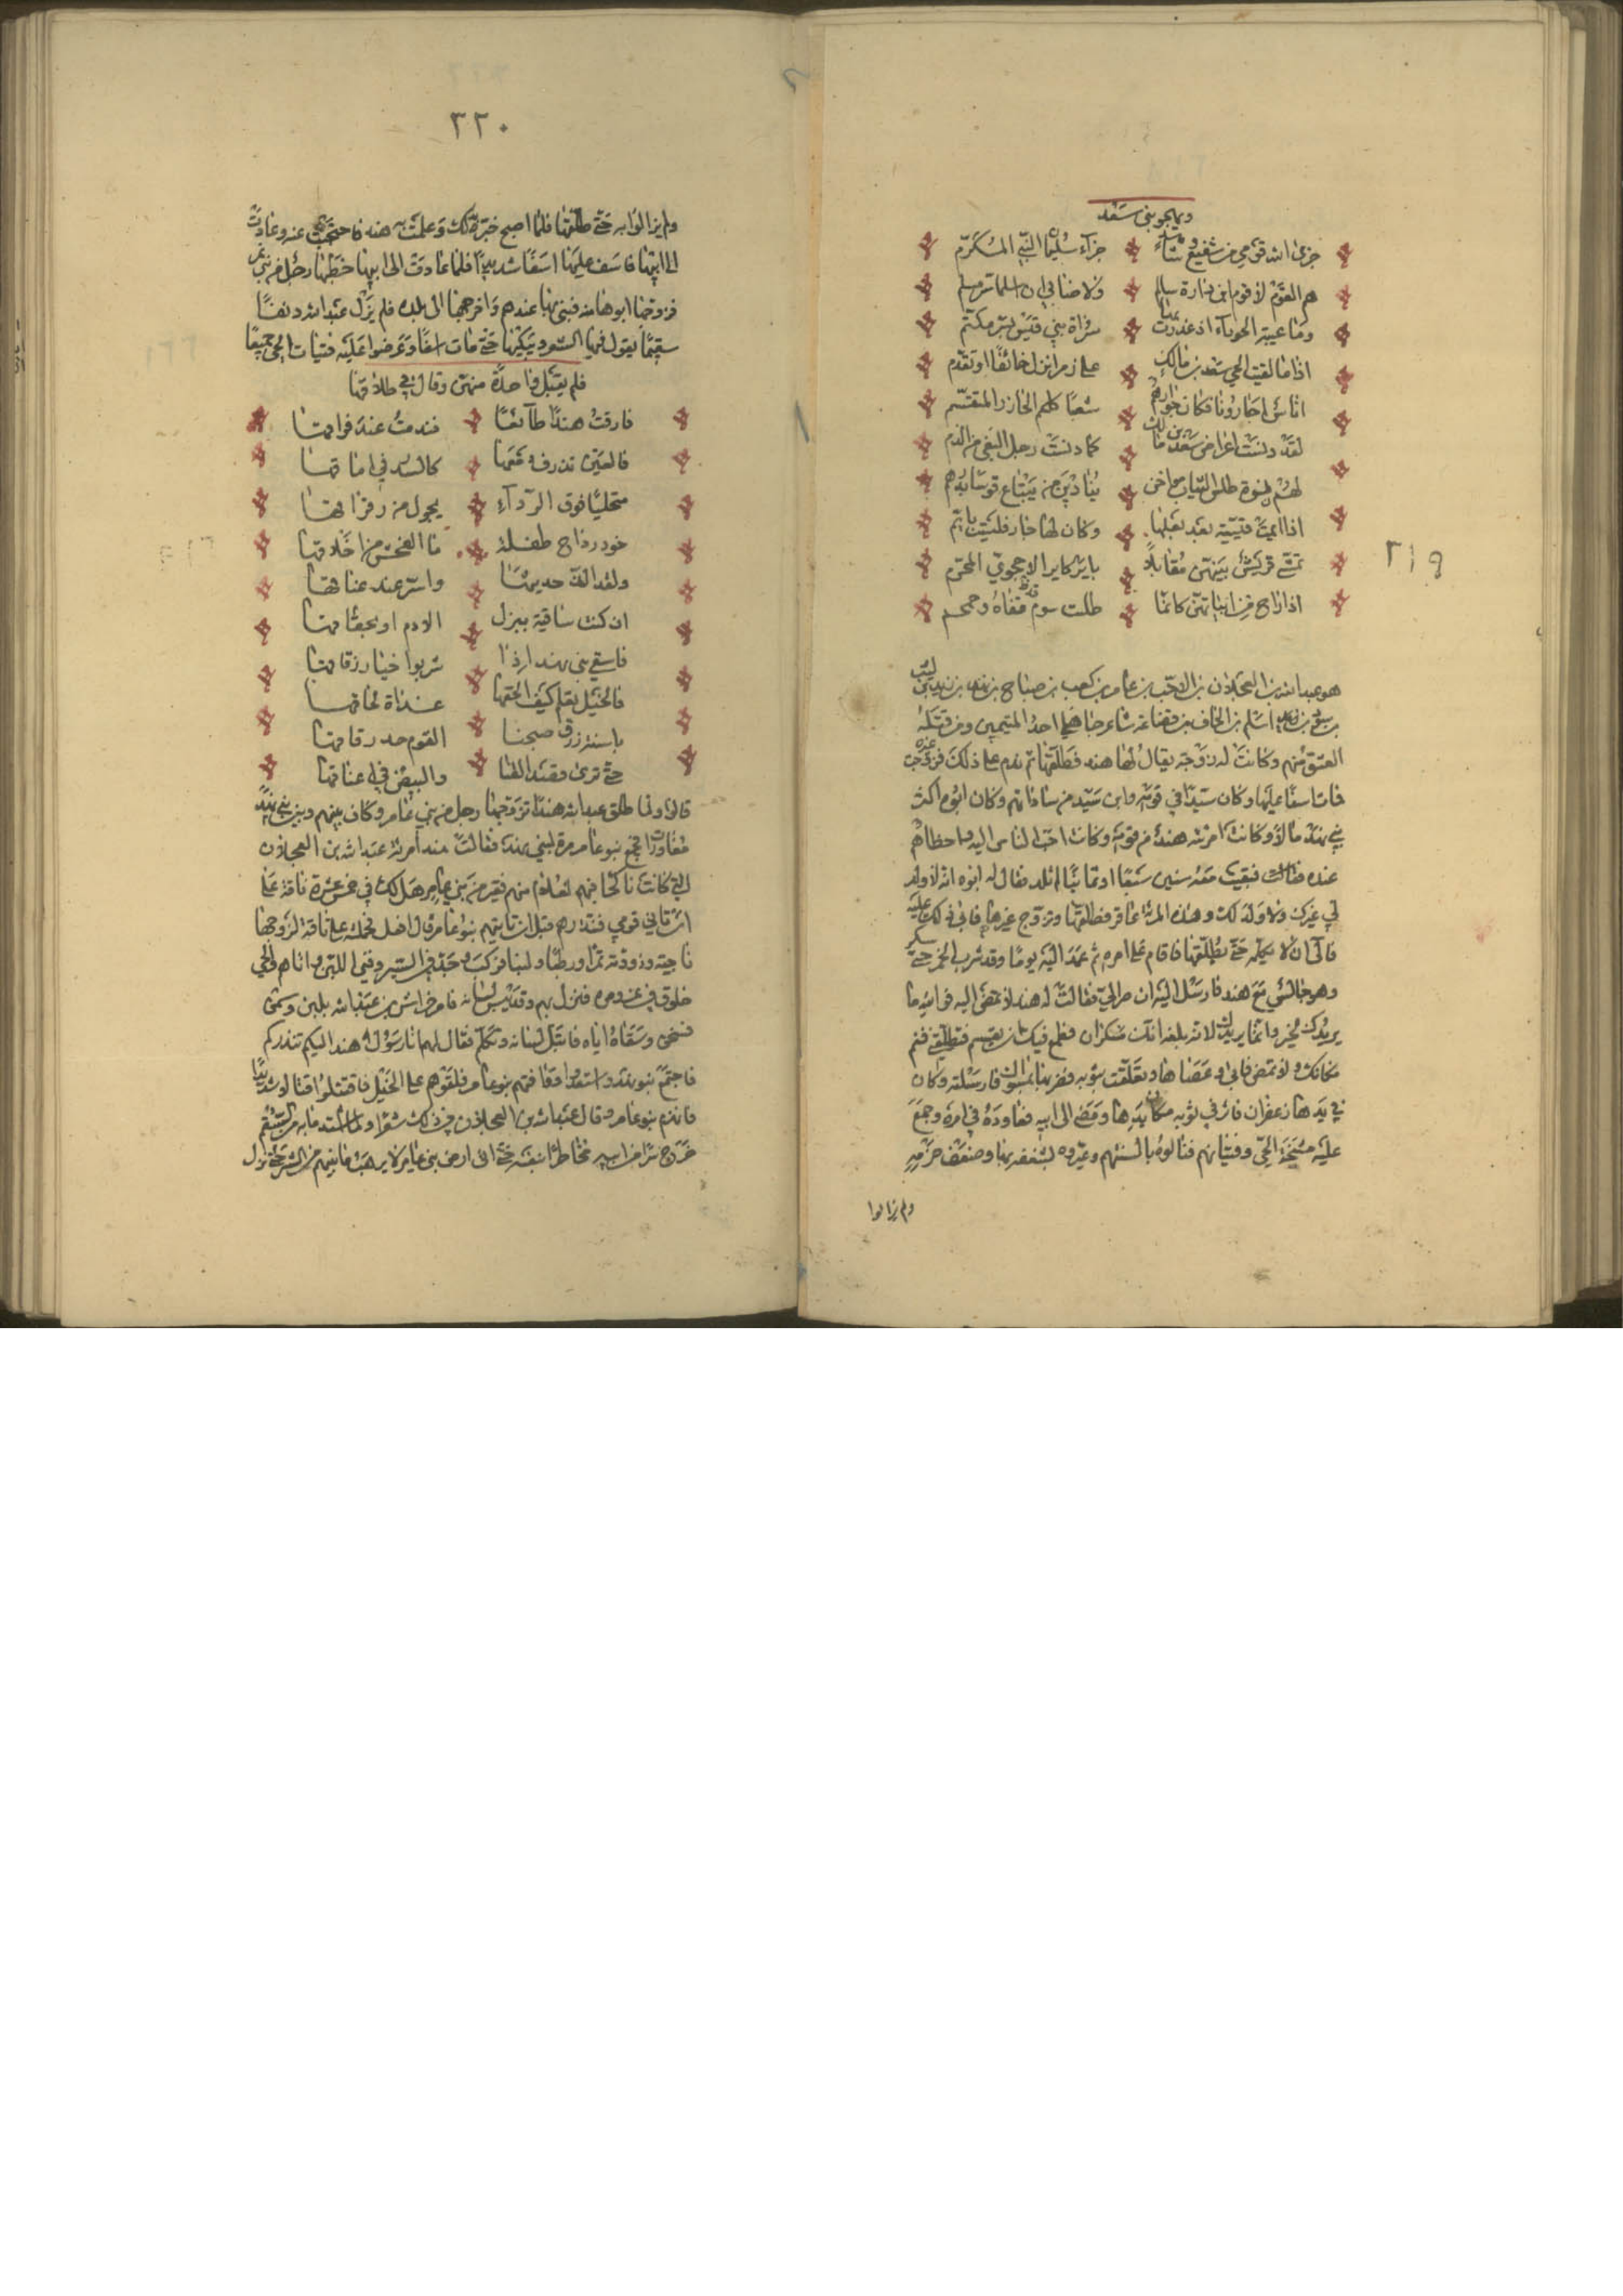 ويهجو بني سعد
جزى الله قومي من شفيع وشاهد جزاء سليمان النبي المكرم
هم القوم لا قوم ابن دارة سالم ولا ضابئ ان اسلما شر مسلم
وما عيبة الحوباء اذ غدرت بها سراة بني قيس بسر مكتم
اذا ما لقيت الحي سعد بن مالك على زم انزل خائفا او تقدم
اناس اجارونا فكان جوارهم شعبا كلحم الجازر المقسم
لقد دنست اعراض سعد بن مالك كما دنست رجل البغي من الدم
لهم نسوة طلس الثياب مواجن ينادين من يبتاع قوسا بدرهم
اذا ايمت قيسية بعد بعلها وكان لها جار فليست بايم
تمشى قريش بينهن مقابلا
اذا راح من ابياتهن كانما طلت سوم قفاه ومحجم
هو عبد الله بن العجلان بن الاحب بن عامر بن كعب بن صباح بن نهد بن زيد بن ليث
بن سود بن اسلم بن الحاف بن قضاعة شاعر جاهلي احد المتيمين ومن قتله
العشق منهم وكانت له زوجة يقال لها هند فطلقها ثم ندم على ذلك فتزوجت غيره
فمات اسفا عليها وكان سيدا في قومه وابن سيد من ساداتهم وكان ابوه اكثر
بني نهد مالا وكانت امرته هند من قومه وكانت احب الناس اليه واحظاهم
عنده فبقيت معه سنين سبعا او ثمانيا لم تلد فقال له ابوه انه لا ولد
لي غيرك ولا ولد لك وهذه المرة عاقر فطلقها وتزوج غيرها فابى ذلك عليه
فآلى ان لا يكلمه حتى يطلقها فاقام على امره ثم عمد اليه يوما وقد شرب الخمر حتى سكر
وهو جالس مع هند فارسل اليه ان صر الي فقالت له هند لا تمضي اليه فوالله ما
يريدك لخير وانما يريدك لانه بلغه انك سكران فطمع فيك ان يقسم فتطلقني فنم
مكانك ولا تمض فابى وعصاها وتعلقت بثوبه فضربها بمسواك فارسلته وكان
في يدها زعفران فاثر في ثوبه مكان يدها ومضى الى ابيه فعاوده في امره وجمع
عليه مشيخة الحي وفتيانهم فتناولوه بالسنتهم وعيروه بشغفه بها وضعف حزمه
ولم يزالوا
٢١٩
٢٢٠
ولم يزالوا به حتى طلقها فلما اصبح خبر بذلك وعلمت به هند فاحتجبت عنه وعادت
الى ابيها فاسف عليها اسفا شديدا فلما عادت الى ابيها خطبها رجل من بني نمير
فزوجها ابوها منه فبنى بها عندهم واخرجها الى بلده فلم يزل عبد الله دنفا
سقيما يقول فيها الشعر ويبكيها حتى مات اسفا وعرضوا عليه فتيات الحي جميعا
فلم يقبل واحدة منهن وقال في طلاقها
فارقت هندا طائعا فندمت عند فراقها
فالعين تذرف دمعها كالدر في اماقها
متحليا فوق الرداء يجول من رقراقها
خود رداح طفلة ما الفحش من اخلاقها
ولقد الذ حديثها واسر عند عناقها
ان كنت ساقية ببزل الادم او بحقاقها
فاسقي بني نهد اذا شربوا خيار زقاقها
فالخيل تعلم كيف نلحقها غداة لحاقها
باسنة زرق صبحنا القوم حد رقاقها
حتى ترى قصد القنا والبيض في اعناقها
قالوا ولما طلق عبد الله هندا تزوجها رجل من بني عامر وكان بينهم وبين بني نهد
مغاورات فجمع بنو عامر مرة لبني نهد فقالت هند امرته عبد الله بن العجلان
التي كانت ناكحا فيهم لغلام منهم فقير من بني عامر هل لك في خمس عشرة ناقة على
ان تاتي قومي فتنذرهم قبل ان تاتيهم بنو عامر قال افعل فحملته على ناقة لزوجها
ناجية وزودته تمرا ووطبا ولبنا فركب وجد في السير وفني اللبن واتاهم والحي
خلوق في غزو وميرة فنزل بهم وقد يبس لسانه فامر خراش بن عبد الله بلبن وسمن
فسخن وسقاه اياه فابتل لسانه وتكلم فقال لهم انا رسول هند اليكم تنذركم
فاجتمع بنو نهد واستعدوا ووافتهم بنو عامر فلقوهم على الخيل فاقتتلوا قتالا شديدا
فانهزم بنو عامر وقال عبد الله بن العجلان في ذلك شعرا ولما اشتد ما به من السقم
خرج سرا من ابيه مخاطرا بنفسه حتى اتى ارض بني عامر لا يرهب ما بينهم من الشر حتى نزل